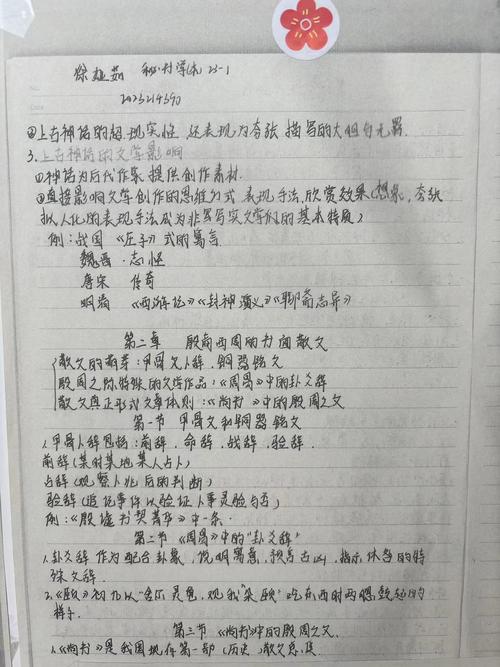 徐娅茹 秘书学本23-1
2023214390
④上古神话的超现实性,还表现为夸张描写的大胆与无羁.
3.上古神话的文学影响
①神话为后代作家提供创作素材.
②直接影响文学创作的思维方式 表现手法,欣赏效果(想象,夸张
拟人化的表现手法成为非写实文学的基本特质)
例:战国 《庄子》式的寓言
魏晋 志怪
唐宋 传奇
明清 《西游记》《封神演义》《聊斋志异》
第二章 殷商西周的书面散文
散文的萌芽:甲骨文卜辞.铜器铭文
殷周之际特殊的文学作品:《周易》中的卦爻辞
散文真正形式文章体则:《尚书》中的殷周之文
第一节 甲骨文和铜器铭文
1.甲骨卜辞包括:前辞.命辞.占辞.验辞.
前辞(某时某地某人占卜)
占辞(观察卜兆后的判断)
验辞(追记事件以验证卜事灵验与否)
例:《殷虚书契菁华》中一条.
第二节 《周易》中的"卦爻辞"
1.卦爻辞作为配合卦象,说明寓意,预言吉凶,指示休咎的特
殊文辞.
2.《颐》初九以"舍尔灵龟,观我朵颐"吃东西时两腮鼓起的
样子.
第三节 《尚书》中的殷周之文.
1.《尚书》是我国现存第一部(历史)散文总集